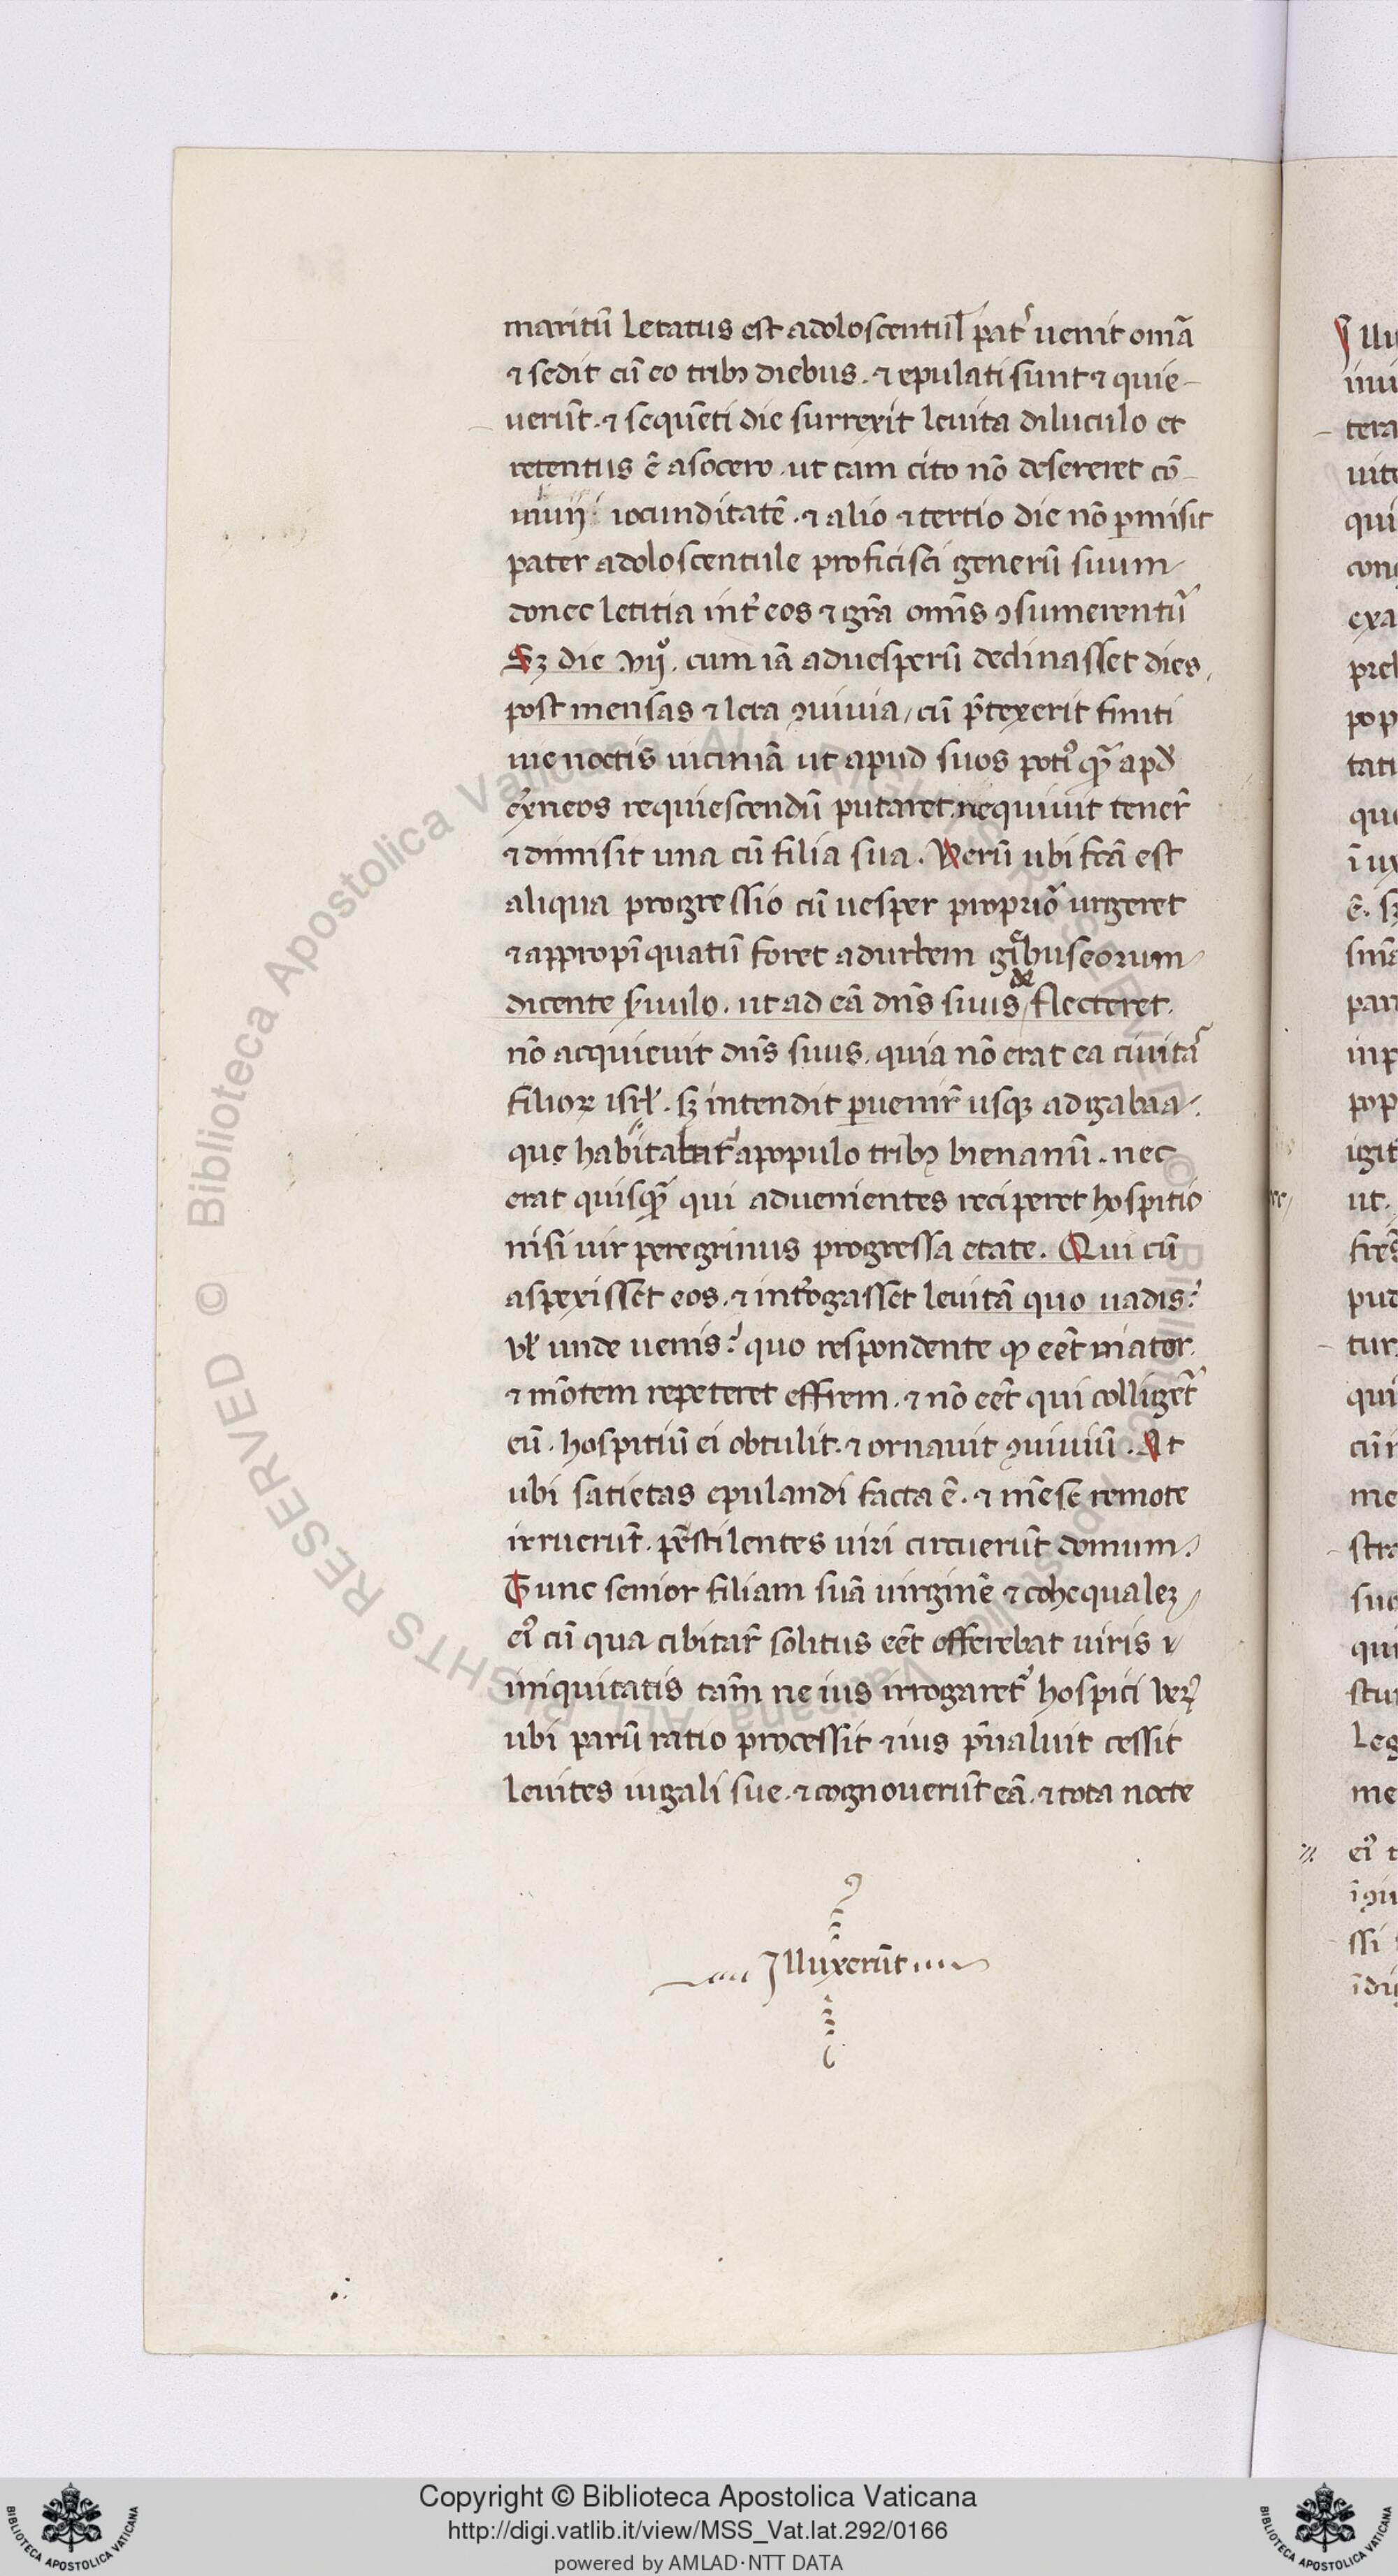 maritū letatus est adoloscentul̄ pat᷑ uenit omā
⁊ sedit cū eo tribꝫ diebus. ⁊ epulati sunt ⁊ quie-
uerūt. ⁊ sequēti die surrexit leuita diluculo et
retentus ē asocero. ut tam cito nō desereret cō-
iocunditatē. ⁊ alio ⁊ tertio die nō ꝑmisit
pater adoloscentule proficisci generū suum
donec letitia int᷑ eos ⁊ gr̄a omīs ꝯsumerentu᷑
Sꝫ die vijͦ. cum iā aduesperū declinasset dies.
post mensas ⁊ leta ꝯuiuia, cū p̄texerit finiti
ue noctis uiciniā ut apud suos potiꝰ qᷓꝫ apd̓
requiescendū putaret. nequiuit tener᷑
⁊ dimisit una cū filia sua. Verū ubi fc̄ā est
aliqua progressio cū uesper propriō urgeret
⁊ appropīquatū foret adurbem gebuseorum
dicente s̓uulo. ut ad eā dn̄s suus deflecteret.
nō acquieuit dn̄s suus. quia nō erat ea ciuita᷑
filioꝝ isrł. sꝫ intendit ꝑuenir᷑ usqꝫ adgabaa.
que habitabat᷑ apopulo tribꝫ bienanū. nec
erat quisqᷓꝫ qui aduenientes reciperet hospitio
nisi uir peregrinus progressa etate. Qui cū
aspexisset eos. ⁊ int᷑ogasset leuitā quo uadis?
vł unde uenis? quo respondente ꝙ eēt uiator.
⁊ mōtem repeteret effrem. ⁊ nō eēt qui colliget᷑
eū. hospitiū ei obtulit. ⁊ ornauit ꝯuiuiū. At
ubi satietas epulandi facta ē. ⁊ mēse remote
irruerūt. pestilentes uiri circuerūt domum.
Tunc senior filiam suā uirginē ⁊ cohequalez
eiꝰ cū qua cibitar᷑ solitus eēt offerebat uiris
iniquitatis tam̄ ne ius irrogaret᷑ hospici Veꝝ
ubi parū ratio processit ⁊ uis p̄ualuit cessit
leuites iugali sue. ⁊ cognouerūt eā. ⁊ tota nocte
Illuxerūt
Copyright © Biblioteca Apostolica Vaticana
http://digi.vatlib.it/view/MSS_Vat.lat.292/0166
powered by AMLAD·NTT DATA